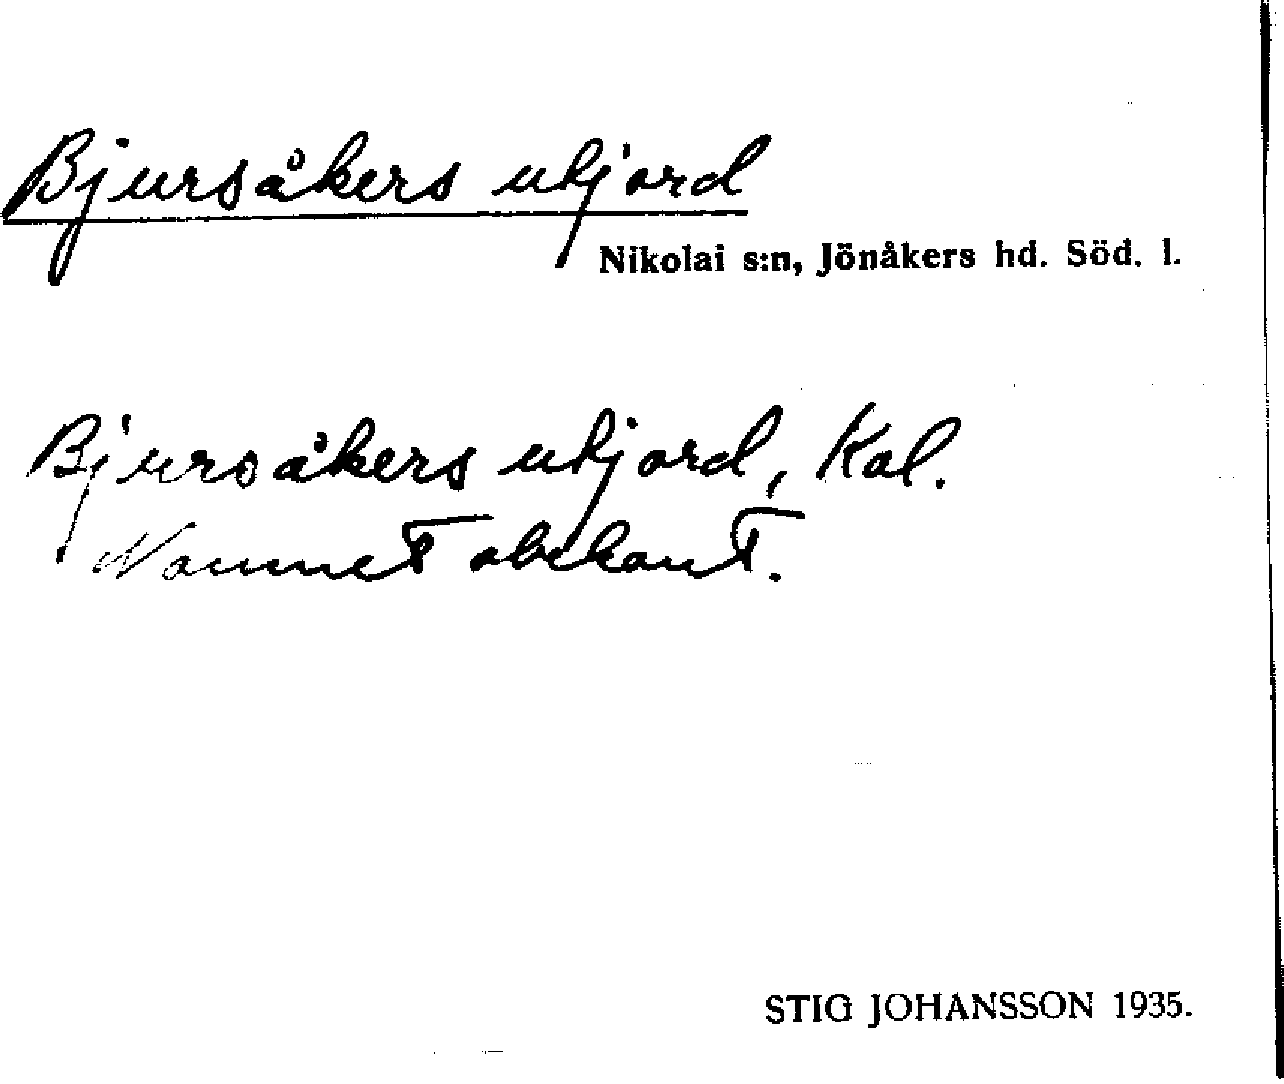 Bjursåkers utjord
Nikolai s:n, Jönåkers hd. Söd. l.
Bjursåkers utjord, Kal.
Namnet obekant.
STIG JOHANSSON 1935.